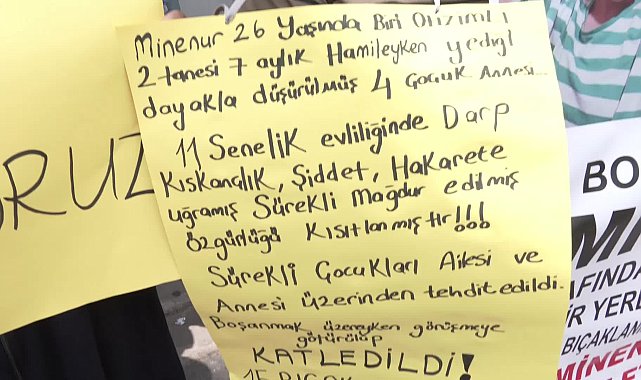 Minenur 26 Yaşında Biri Otizimli
2 tanesi 7 aylık Hamileyken yediği
dayakla düşürülmüş 4 çocuk Annesi...
11 Senelik evliliğinde Darp
Kıskançlık, Şiddet, Hakarete
uğramış Sürekli Mağdur edilmiş
Özgürlüğü Kısıtlanmıştır!!!
Sürekli Çocukları Ailesi ve
Annesi üzerinden tehdit edildi.
Boşanmak üzereyken görüşmeye
götürülüp
KATLEDİLDİ!
15 BIÇAK
RUZ
BO
AFINDA
İR YER
BIÇAKLA
MİNEN